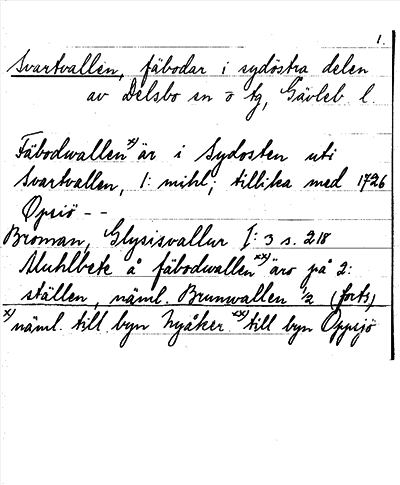 1.
Svartvallen, fäbodar i sydöstra delen
av Delsbo sn o tg, Gävleb l.
Fäbodwallen x) är i Sydosten uti
Svartvallen, 1: mihl; tillika med 1726
Öpsiö - -
Broman, Glysisvallur I: 3 s. 218
Muhlbete å fäbodwallen xx) äro på 2:
ställen, näml. Brunwallen 1/2 (forts)
x) näml. till byn Nyåker xx) till byn Öppsjö